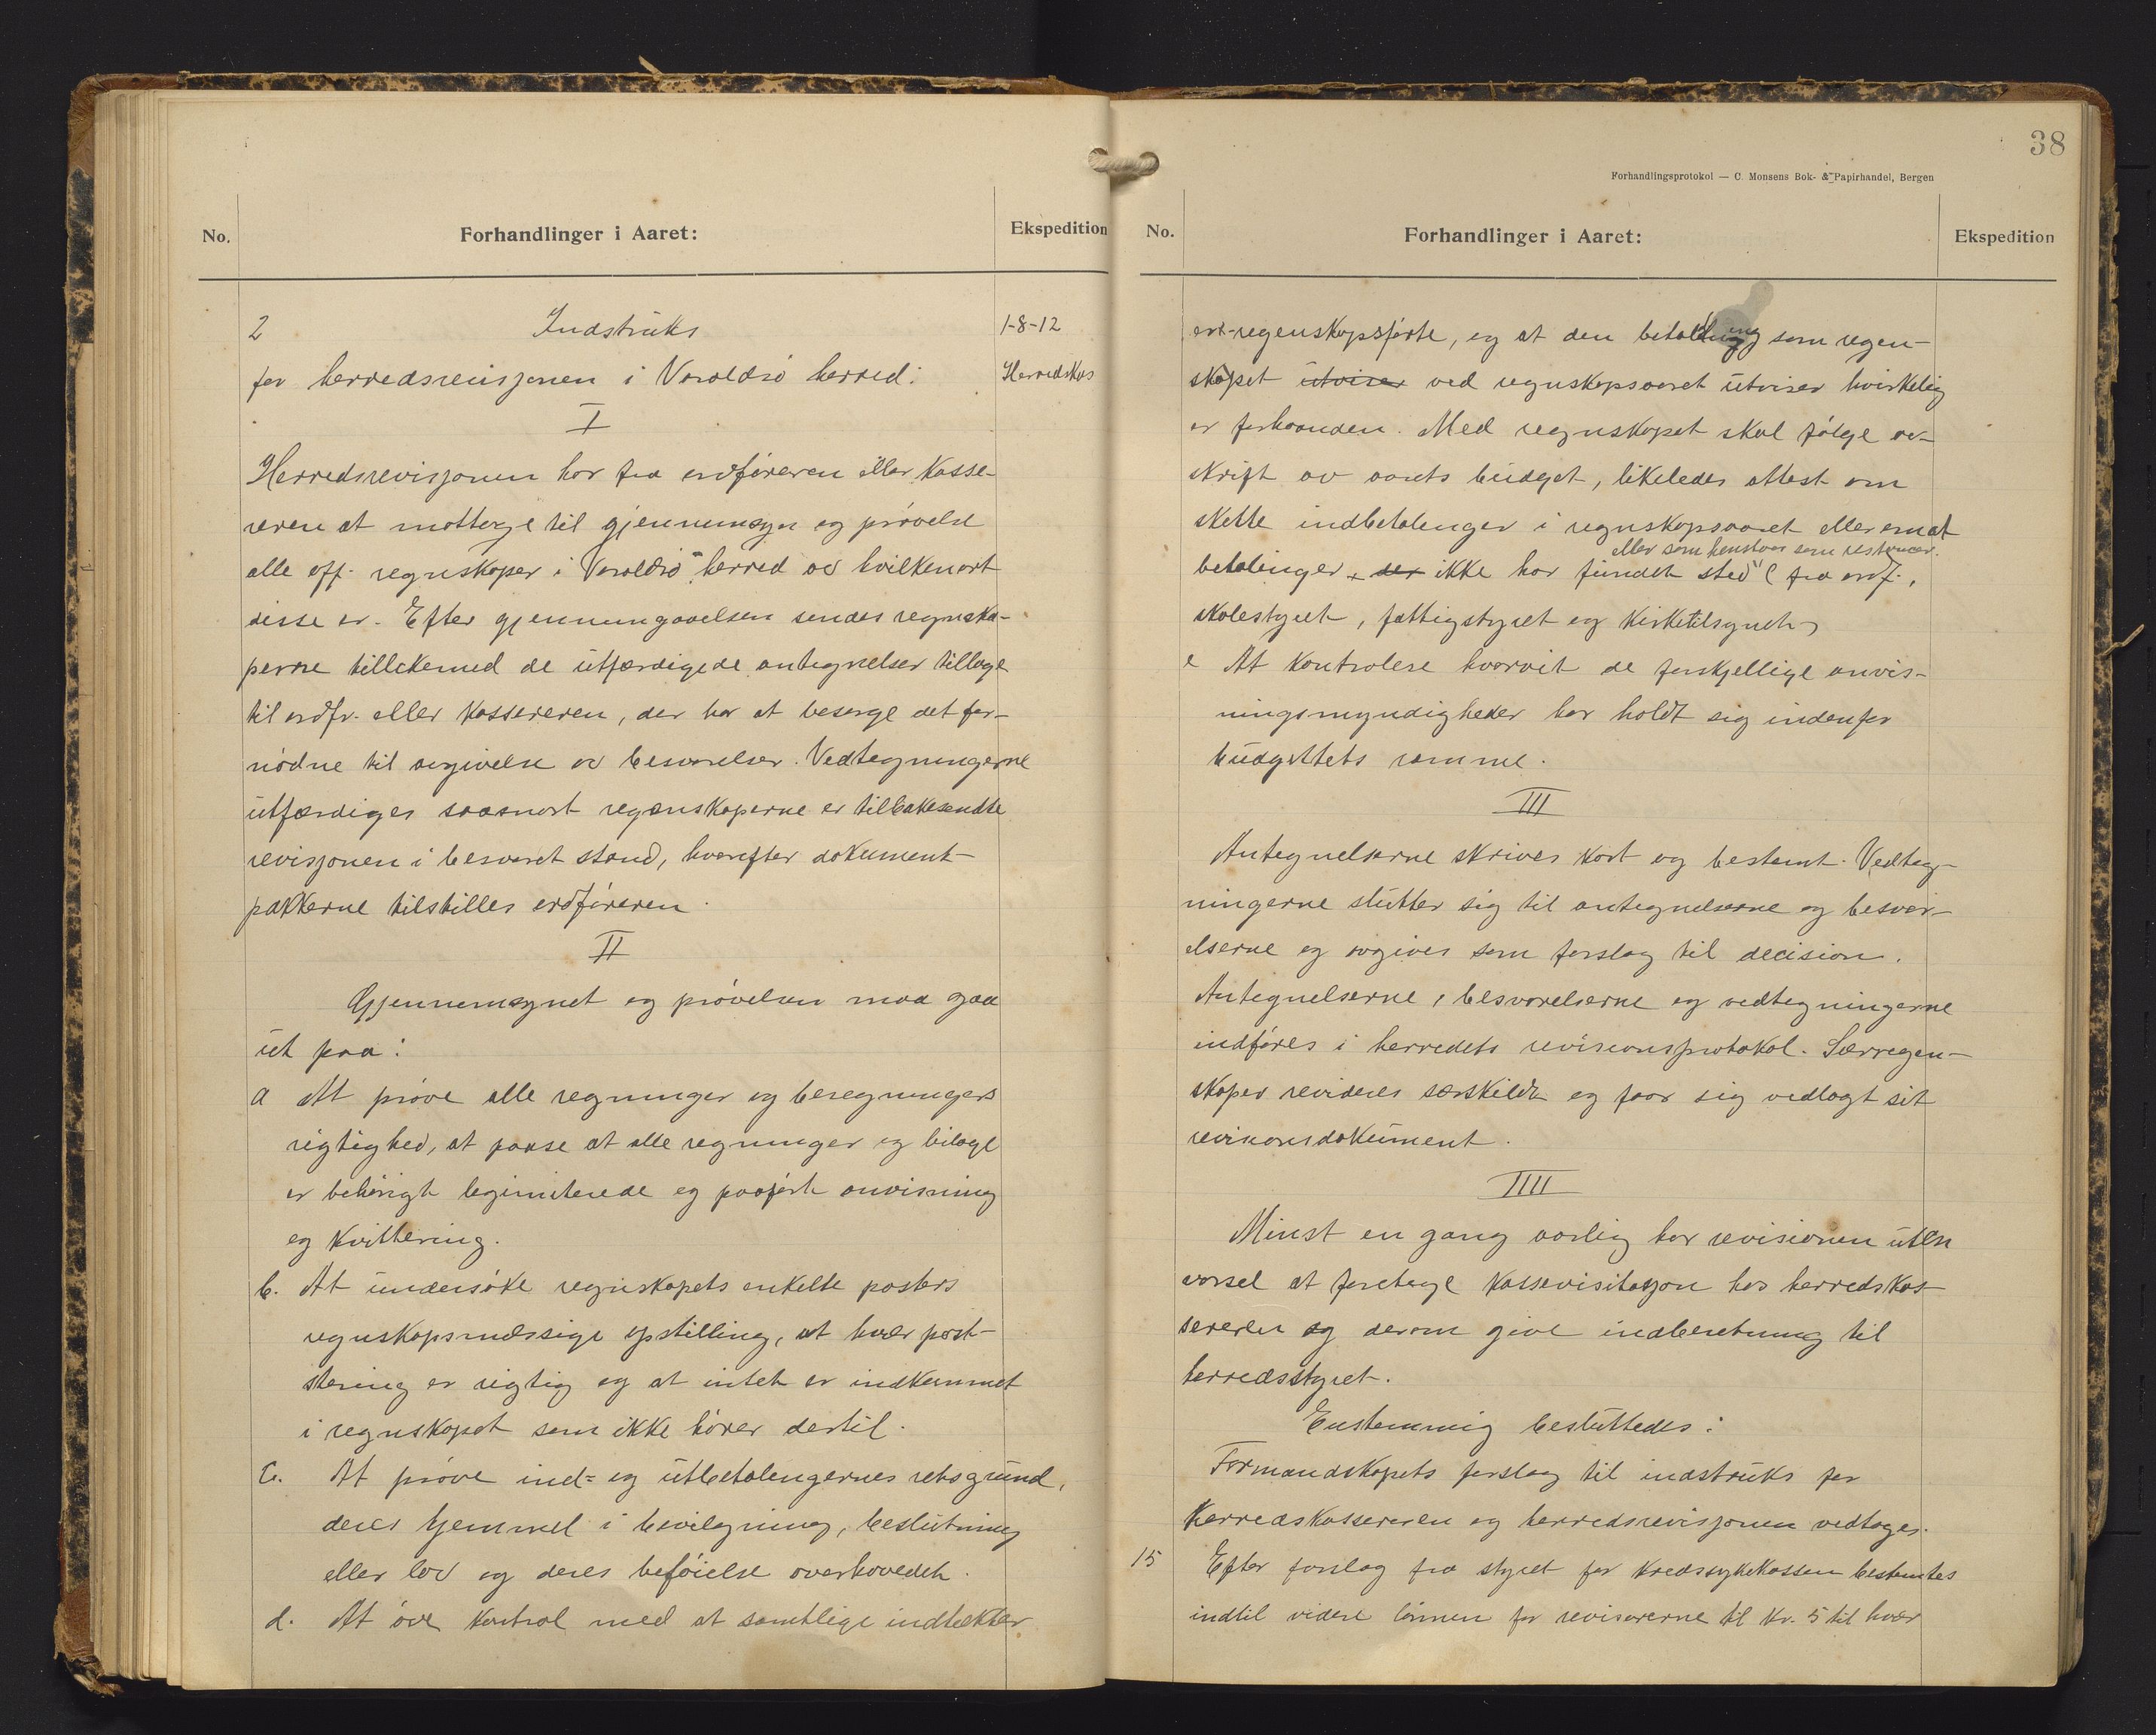 No.
Forhandlinger i Aaret:
Ekspedition
2 Indstruks 1-8-12
for herredsrevisjonen i Varaldsö herred: Herredskas
I
Herredsrevisjonen har fra ordføreren eller kasse-
reren at mottage til gjennemsyn og prövelse
alle off. regnskaper i Varaldsö herred av hvilkenart
disse er. Efter gjennemgaaelsen sendes regnska-
perne tillikemed de utfærdigede antegnelser tilbage
til ordfr. eller kassereren, der har at besørge det for-
nödne til avgivelse av besvarelser. Vedtegningerne
utfærdiges saasnart regnskaperne er tilbakesendte
revisjonen i besvaret stand, hvorefter dokument-
pakkerne tilstilles ordföreren.
II
Gjennemsynet og prövelsen maa gaa
ut paa:
a At pröve alle regninger og beregningers
rigtighed, at paase at alle regninger og bilage
er behörigt legimiterede og paaført anvisning
og kvittering.
b. At undersöke regnskapets enkelte posters
regnskapsmæssige opstilling, at hver post-
stering er rigtig og at intet er indkommet
i regnskapet som ikke hörer dertil.
c. At pröve ind= og utbetalingernes retsgrund,
deres hjemmel i bevilgning, beslutning
eller lov og deres beföielse overhovedet.
d. At öve kontrol med at samtlige indtækter
38
Forhandlingsprotokol — C. Monsens Bok- & Papirhandel, Bergen
No.
Forhandlinger i Aaret:
Ekspedition
er regenskapsförte, og at den beholdning som regen-
skapet utviser ved regnskapsaaret utviser hvirkelig
er forhaanden. Med regnskapet skal fölge av-
skrift av aarets budget, likeledes attest om
skette indbetalinger i regnskapsaaret eller om at
eller som henstaar som restancer.
betalinger der ikke har fundet sted (fra ordf.,
skolestyret, fattigstyret og kirketilsynet)
e At kontrolere hvorvit de forskjellige anvis-
ningsmyndigheder har holdt sig indenfor
budgettets ramme.
III
Antegnelserne skrives kort og bestemt. Vedteg-
ningerne slutter sig til antegnelserne og besvar-
elserne og avgives som forslag til decision.
Antegnelserne, besvarelserne og vedtegningerne
indföres i herredets revisionsprotokol. Særregen-
skaper revideres særskildt og faar sig vedlagt sit
revisionsdokument.
IIII
Minst en gang aarlig har revisionen uten
varsel at foretage kassevisitasjon hos herredskas-
sereren og derom give indberetning til
herredsstyret.
Enstemmig besluttedes:
Formandskapets forslag til indstruks for
herredskassereren og herredsrevisjonen vedtages.
15 Efter forslag fra styret for kredssykekassen bestemtes
indtil videre lönnen for revisorerne til kr. 5 til hver